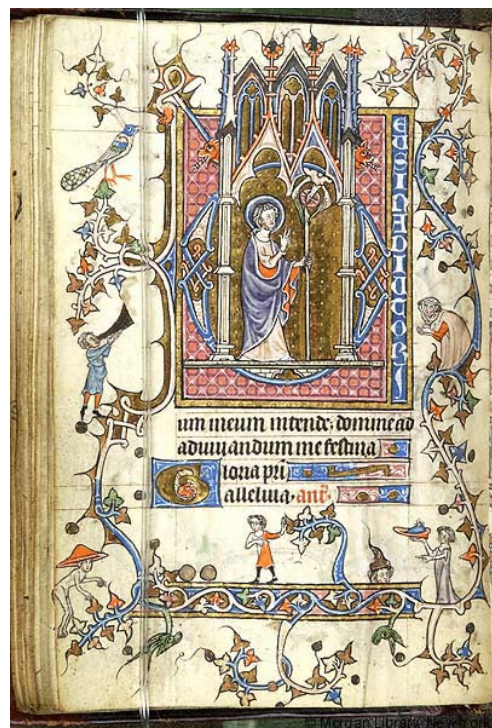 EUS IN ADIUTORI
um meum intende, domine ad
adiuvandum me festina
loria pri
alleluia. ant.
© Morgan Library, New York